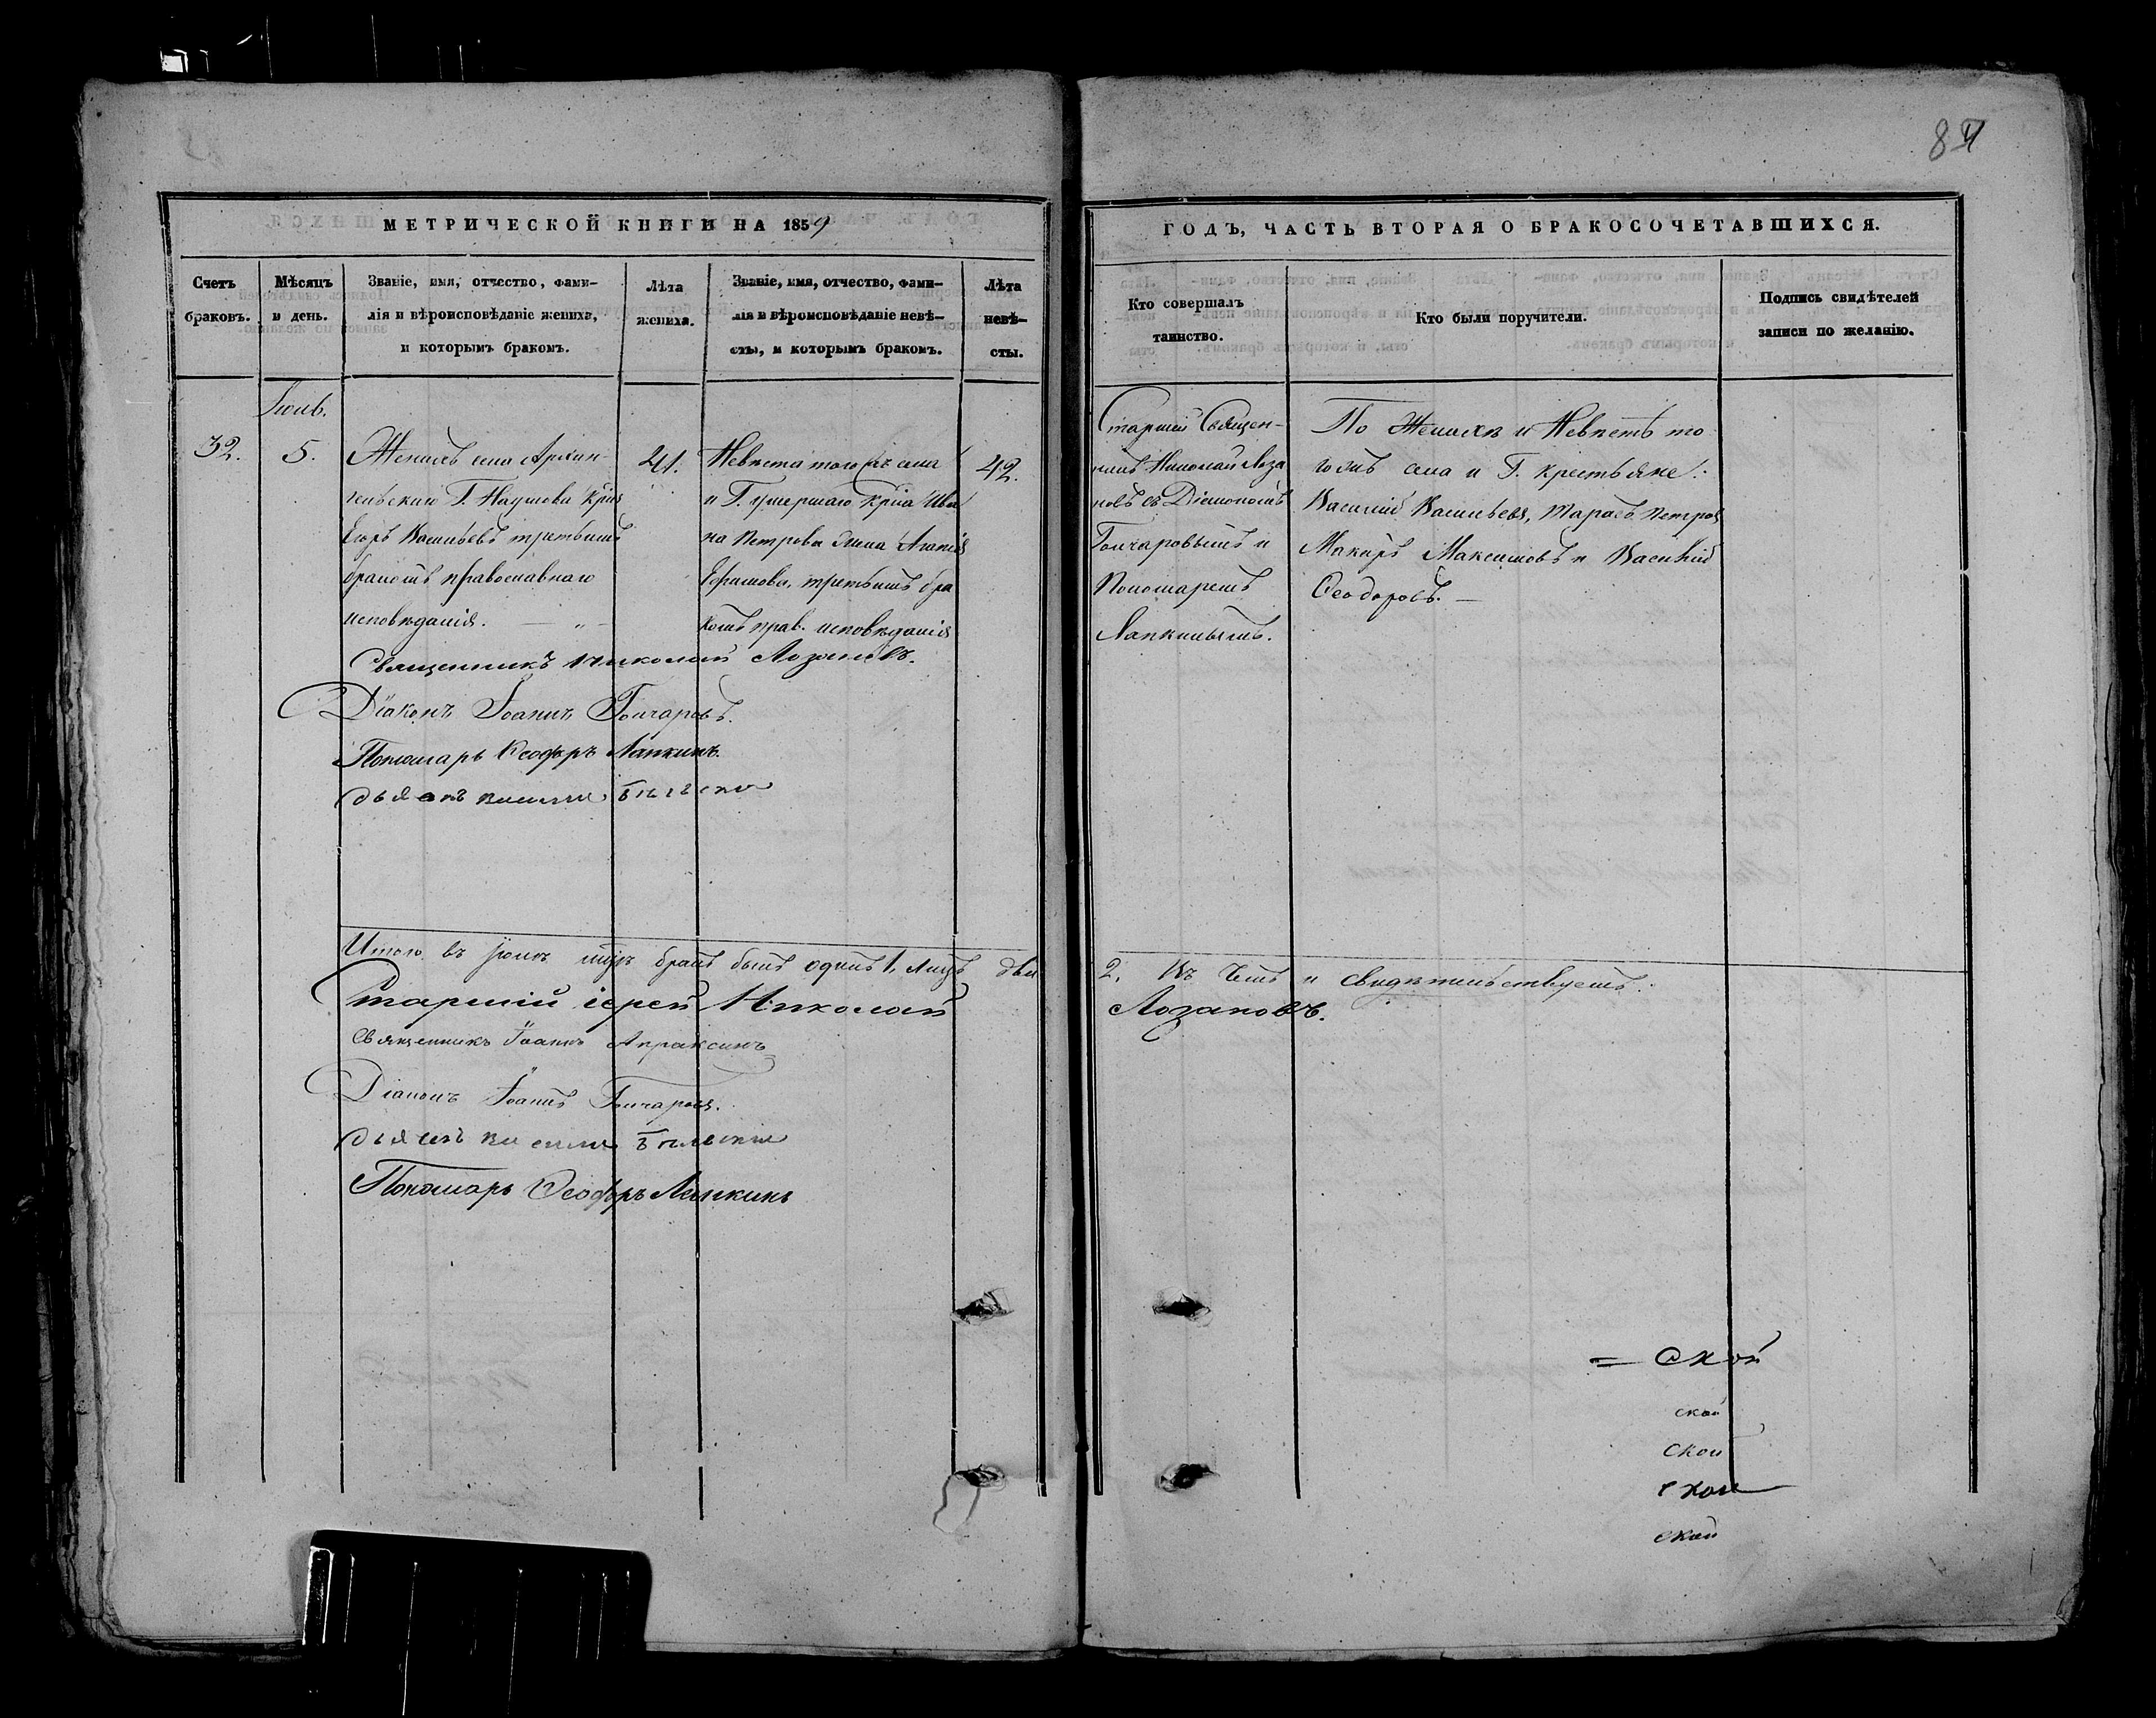 84
МЕТРИЧЕСКОЙ КНИГИ НА 1859
ГОДЪ, ЧАСТЬ ВТОРАЯ О БРАКОСОЧЕТАВШИХСЯ.
Счетъ
браковъ.
Мѣсяцъ
и день.
Званіе, имя, отчество, фами-
лія и вѣроисповѣданіе жениха,
и которымъ бракомъ.
Лѣта
жениха.
Званіе, имя, отчество, фами-
лія и вѣроисповѣданіе невѣ-
сты, и которымъ бракомъ.
Лѣта
невѣ-
сты.
Кто совершалъ
таинство.
Кто были поручители.
Подпись свидѣтелей
записи по желанію.
32.
5.
Женихъ села Архан-
гельскаго Г. Наумова
Егоръ Васильевъ третьимъ
бракомъ православнаго
исповѣданія.
41.
Невѣста того жъ села
и Г. умершаго Ива
на Петрова жена Агапія
Ефимова, третьимъ бра
комъ прав. исповѣданія
42.
Старшій Священ-
никъ Николай Лоза
новъ съ Діакономъ
Гончаровымъ и
Пономаремъ
Лапкинымъ.
По Женихѣ и Невѣстѣ то
гожъ села и Г. крестьяне:
Василій Васильевъ, Тарасъ Петровъ
Макаръ Максимовъ и Василій
Ѳеодоровъ.
Священникъ Николай Лозановъ.
Діаконъ Іоаннъ Гончаровъ.
Пономарь Лапкинъ.
Итого въ бракъ былъ одинъ 1, лицъ два
2. Въ чемъ и свидѣтельствуемъ:
Старшій іерей Николай
Лозановъ.
Священникъ Іоаннъ Апраксинъ
Діаконъ Іоаннъ Гончаровъ.
Пономарь Лапкинъ
= ской
ской
ской
ской
ской